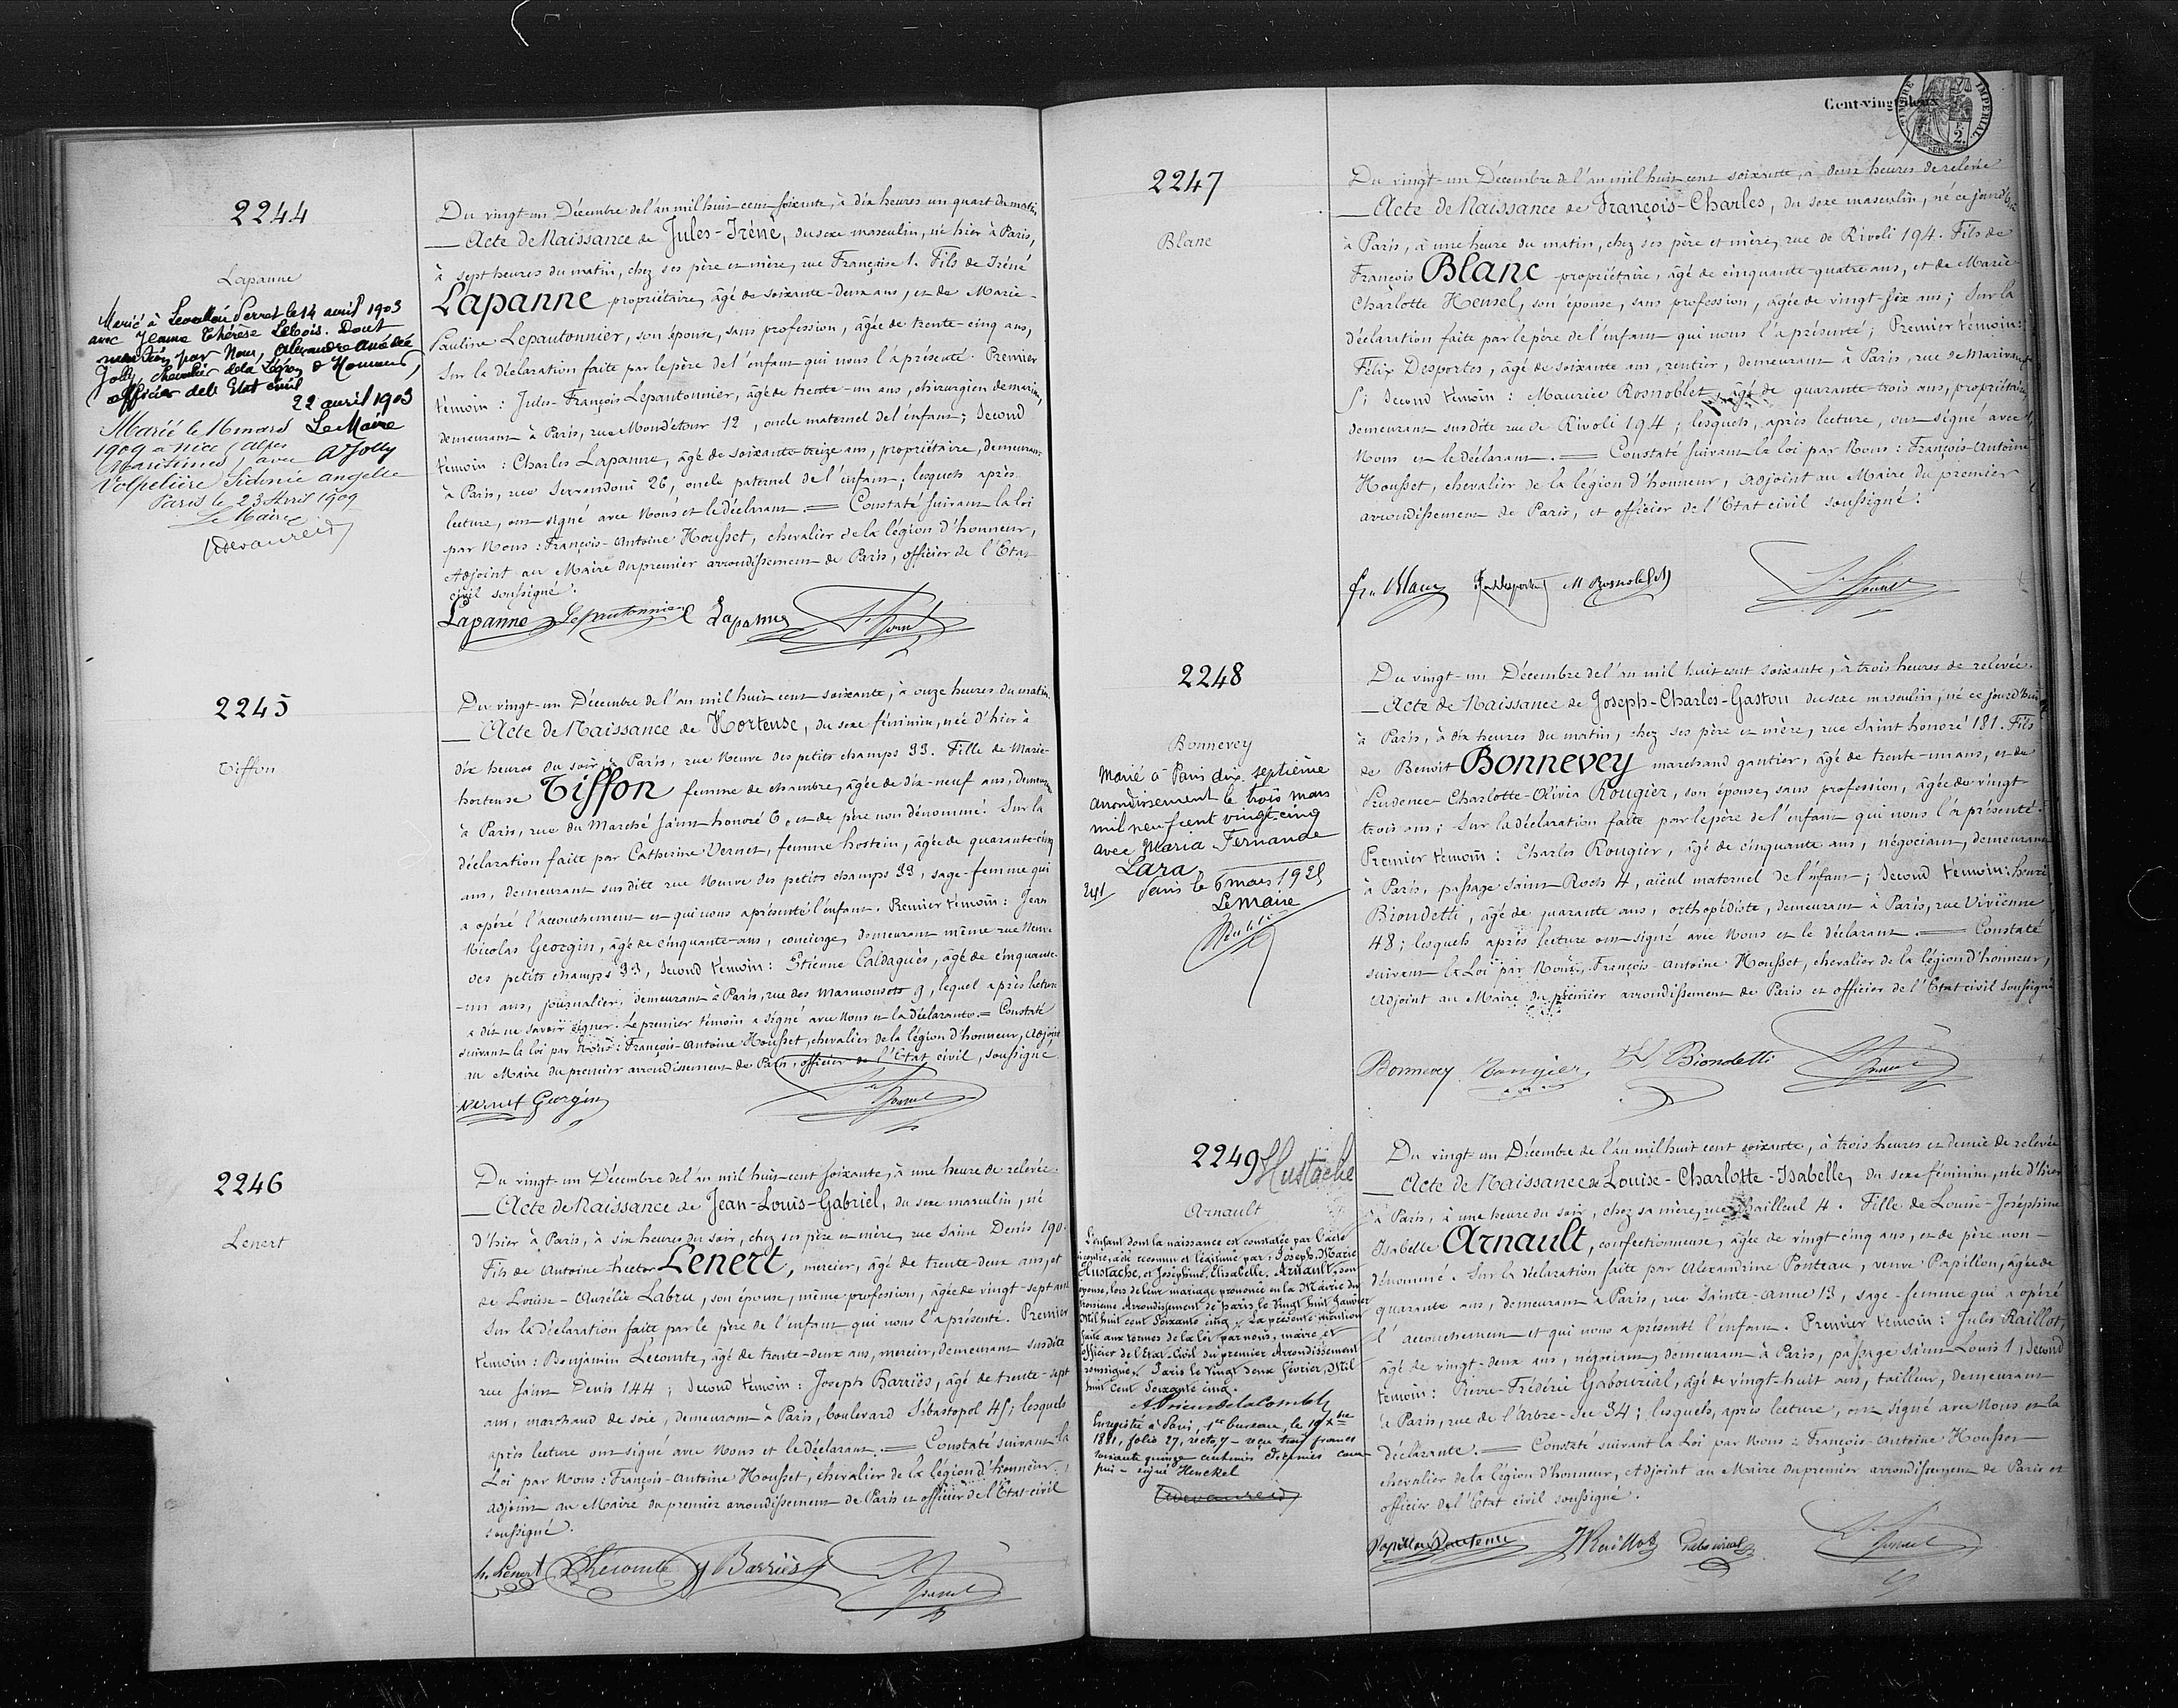 2244
Lapanne
Marié à Levallois Perret le 14 avril 1903
avec Jeanne Thérèse Lebois. Dont
mention par Nous, Alexandre Amédée
Jolly, chevalier de la Légion d'Honneur,
officier de l'Etat civil
22 avril 1903
Le Maire
A Jolly
Marié le 16 mars
1909 à Nice (Alpes
Maritimes) avec
Volpelière Sidonie Angèle
Paris le 23 Avril 1909
Le Maire
Du vingt-un Décembre de l'an mil huit cent soixante, à dix heures un quart du matin
— Acte de Naissance de Jules-Iréné, du sexe masculin, né hier à Paris,
à sept heures du matin, chez ses père et mère, rue Française 1. Fils de Iréné
Lapanne propriétaire, âgé de soixante-deux ans, et de Marie-
Pauline Lepautonnier, son épouse, sans profession, âgée de trente-cinq ans,
Sur la déclaration faite par le père de l'enfant qui nous l'a présenté. Premier
témoin : Jules-François Lepautonnier, âgé de trente-un ans, chirurgien de marine,
demeurant à Paris, rue Mondétour 12, oncle maternel de l'enfant ; Second
témoin : Charles Lapanne, âgé de soixante-treize ans, propriétaire, demeurant
à Paris, rue Servandoni 26, oncle paternel de l'enfant ; lesquels après
lecture, ont signé avec Nous et le déclarant. = Constaté suivant la loi
par Nous : François-Antoine Housset, chevalier de la légion d'honneur,
Adjoint au Maire du premier arrondissement de Paris, officier de l'Etat
civil soussigné.
Lapanne Lepautonnier Lapanne
2245
Tiffon
Du vingt-un Décembre de l'an mil huit cent soixante, à onze heures du matin.
— Acte de Naissance de Hortense, du sexe féminin, née d'hier à
dix heures du soir, à Paris, rue Neuve des petits champs 33. Fille de Marie-
hortense Tiffon femme de chambre, âgée de dix-neuf ans, demeurant
à Paris, rue du Marché saint honoré 6, et de père non dénommé. Sur la
déclaration faite par Catherine Vernet, femme hostein, âgée de quarante-cinq
ans, demeurant susdite rue Neuve des petits champs 33, sage-femme qui
a opéré l'accouchement et qui nous a présenté l'enfant. Premier témoin : Jean
Nicolas Georgin, âgé de cinquante-ans, concierge, demeurant même rue Neuve
des petits champs 33, Second témoin : Etienne Caldaguès, âgé de cinquante-
-un ans, journalier, demeurant à Paris, rue des Marmousets 9, lequel après lecture
a dit ne savoir signer. Le premier témoin a signé avec Nous et la déclarante. = Constaté
suivant la loi par Nous : François-Antoine Housset, chevalier de la légion d'honneur, Adjoint
au Maire du premier arrondissement de Paris, officier de l'Etat civil, soussigné
Vernet Georgin
2246
Lenert
Du vingt-un Décembre de l'an mil huit-cent soixante, à une heure de relevée.
— Acte de Naissance de Jean-Louis-Gabriel, du sexe masculin, né
d'hier à Paris, à six heures du soir, chez ses père et mère, rue Saint Denis 190.
Fils de Antoine-hector Lenert, mercier, âgé de trente-deux ans, et
de Louise-Aurélie Labru, son épouse, même profession, âgée de vingt-sept ans
Sur la déclaration faite par le père de l'enfant qui nous l'a présenté. Premier
témoin : Benjamin Lecomte, âgé de trente-deux ans, mercier, demeurant susdite
rue saint Denis 144 ; Second témoin : Joseph Barriès, âgé de trente-sept
ans, marchand de soie, demeurant à Paris, boulevard Sébastopol 45 ; lesquels
après lecture ont signé avec Nous et le déclarant. = Constaté suivant la
Loi par Nous : François-Antoine Housset, chevalier de la légion d'honneur,
adjoint au Maire du premier arrondissement de Paris et officier de l'Etat civil
soussigné.
h. Lenert Lecomte J Barriès
Cent-vingt-deux
TIMBRE IMPERIAL
SEINE
2247
Blanc
Du vingt-un Décembre de l'an mil huit cent soixante, à deux heures de relevée
— Acte de Naissance de François-Charles, du sexe masculin, né ce jourd'hui
à Paris, à une heure du matin, chez ses père et mère, rue de Rivoli 194. Fils de
François Blanc propriétaire, âgé de cinquante-quatre ans, et de Marie-
Charlotte Hensel, son épouse, sans profession, âgée de vingt-six ans ; Sur la
déclaration faite par le père de l'enfant qui nous l'a présenté ; Premier témoin :
Félix Desportes, âgé de soixante ans, rentier, demeurant à Paris, rue de Marivaux
5 ; Second témoin : Maurice Rosnoblet, âgé de quarante-trois ans, propriétaire,
demeurant susdite rue de Rivoli 194 ; lesquels, après lecture, ont signé avec
Nous et le déclarant. = Constaté suivant la loi par Nous : François-Antoine
Housset, chevalier de la légion d'honneur, Adjoint au Maire du premier
arrondissement de Paris, et officier de l'Etat civil soussigné.
fr. Blanc M Rosnoblet
2248
Bonnevey
Marié à Paris dix septième
arrondissement le trois mars
mil neuf cent vingt cinq
avec Maria Fernande
Lara
241 Paris le 6 mars 1925
Le Maire
Du vingt-un Décembre de l'an mil huit cent soixante, à trois heures de relevée.
— Acte de Naissance de Joseph-Charles-Gaston du sexe masculin, né ce jourd'hui
à Paris, à dix heures du matin, chez ses père et mère, rue Saint honoré 181. Fils
de Benoit Bonnevey marchand gantier, âgé de trente-un ans, et de
Prudence-Charlotte-Olivia Rougier, son épouse, sans profession, âgée de vingt-
trois ans ; Sur la déclaration faite par le père de l'enfant qui nous l'a présenté.
Premier témoin : Charles Rougier, âgé de cinquante ans, négociant, demeurant
à Paris, passage Saint-Roch 4, aïeul maternel de l'enfant ; Second témoin : henri
Biondetti, âgé de quarante ans, orthopédiste, demeurant à Paris, rue Vivienne
48 ; lesquels après lecture ont signé avec Nous et le déclarant. = Constaté
suivant la Loi par Nous, François-Antoine Housset, chevalier de la légion d'honneur,
Adjoint au Maire du premier arrondissement de Paris et officier de l'Etat civil soussigné
Bonnevey Rougier H Biondetti
2249 Hustache
Arnault
L'enfant dont la naissance est constatée par l'acte
ci contre, a été reconnu et légitimé par : Joseph, Marie
Hustache, et Joséphine, Elisabelle, Arnault, son
épouse, lors de leur mariage prononcé en la Mairie du
troisième Arrondissement de paris, le Vingt huit Janvier
Mil huit cent Soixante cinq. La présente mention
faite aux termes de la loi par nous, maire et
officier de l'Etat-Civil du premier Arrondissement
soussigné. Paris le Vingt deux Février, Mil
huit cent Soixante cinq.
Enregistré à Paris, 1er bureau, le 19 Xbre
1881, folio 27, recto, 7 – reçu trois francs
soixante quinze centimes décimes com-
pris – signé Henckel
Du vingt-un Décembre de l'an mil huit cent soixante, à trois heures et demie de relevée
— Acte de Naissance de Louise-Charlotte-Isabelle, du sexe féminin, née d'hier
à Paris, à une heure du soir, chez sa mère, rue Bailleul 4. Fille de Louise-Joséphine
Isabelle Arnault, confectionneuse, âgée de vingt-cinq ans, et de père non-
dénommé. Sur la déclaration faite par Alexandrine Ponteau, veuve Papillon, âgée de
quarante ans, demeurant à Paris, rue Sainte-Anne 13, sage-femme qui a opéré
l'accouchement et qui nous a présenté l'enfant. Premier témoin : Jules Raillot,
âgé de vingt-deux ans, négociant, demeurant à Paris, passage saint Louis 1, Second
témoin : Pierre-Frédéric Gabourial, âgé de vingt-huit ans, tailleur, demeurant
à Paris, rue de l'Arbre-Sec 34 ; lesquels, après lecture, ont signé avec Nous et la
déclarante. = Constaté suivant la Loi par Nous : François-Antoine Housset
chevalier de la légion d'honneur, Adjoint au Maire du premier arrondissement de Paris et
officier de l'Etat civil soussigné.
JRaillot Gabourial